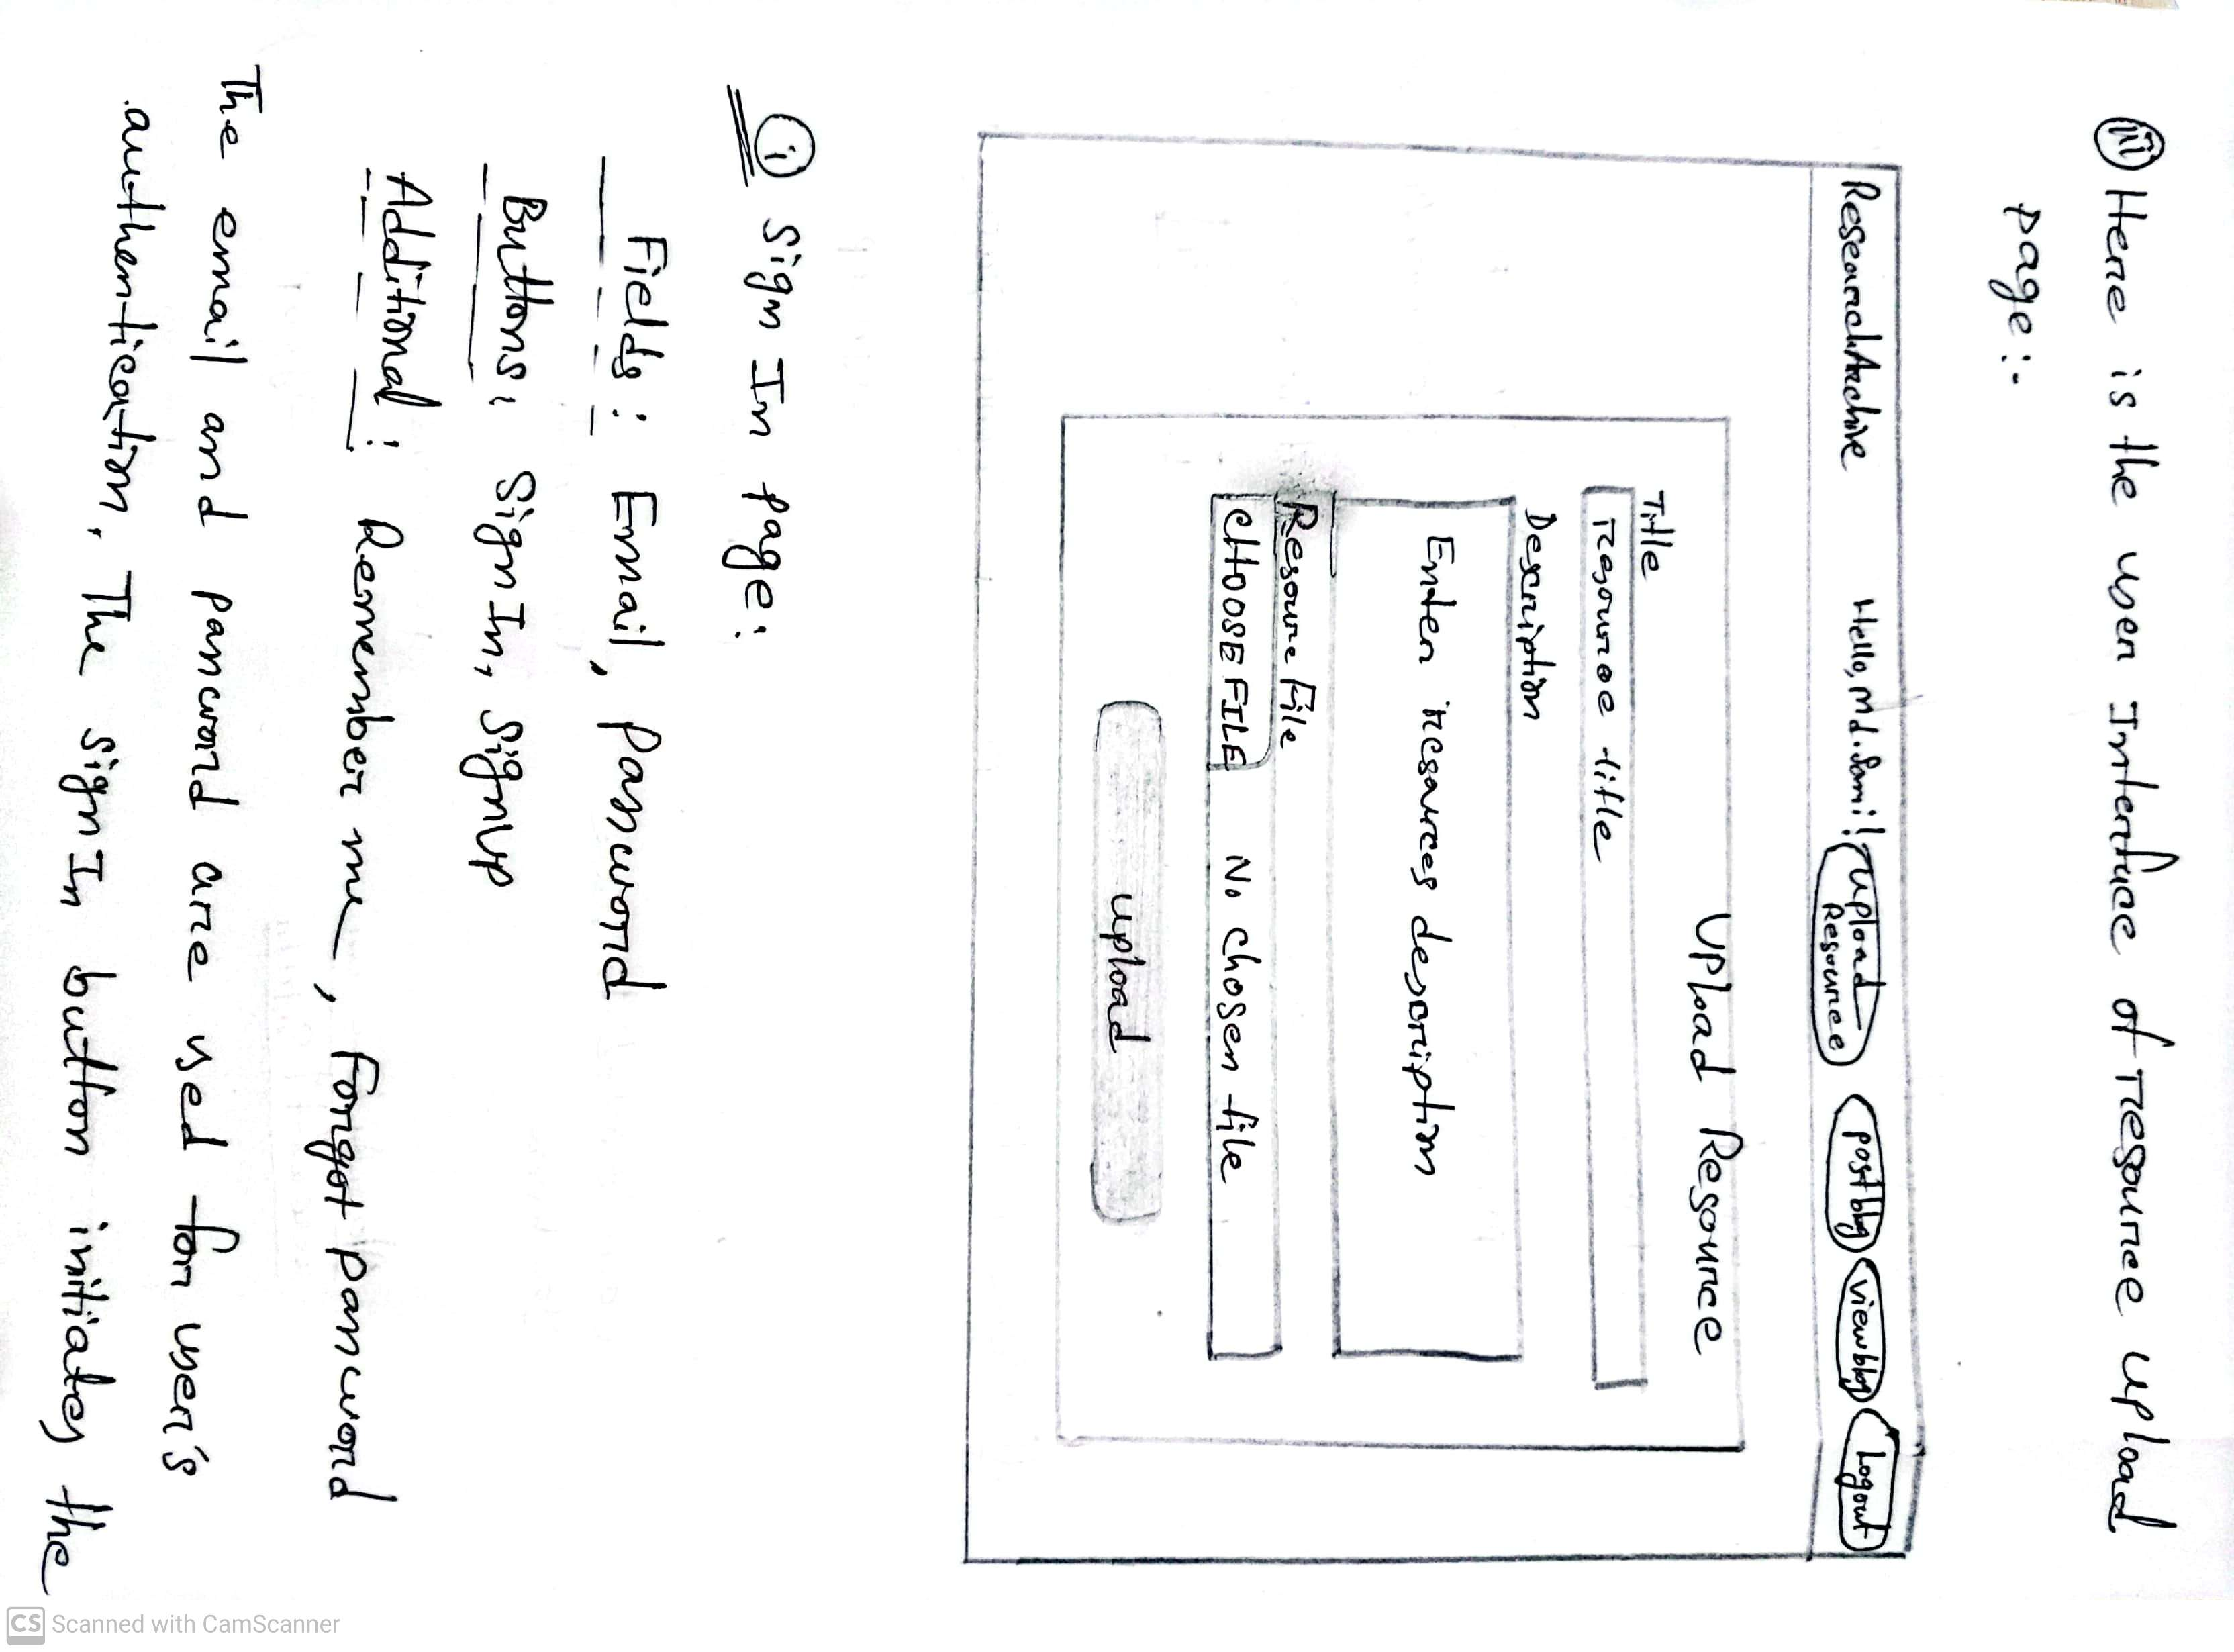 (iii) Here is the user Interface of resource upload
page:-
ResearchArchive Hello, Md. Sami! Upload Resource post blog view blog Logout
Upload Resource
Title
resource title
Description
Enter resources description
Resource File
CHOOSE FILE No chosen file
upload
(i) Sign In Page:
Fields: Email, Password
Buttons: Sign In, Sign Up
Additional: Remember me, Forgot password
The email and password are used for user's
authentication. The Sign In button initiates the
CS Scanned with CamScanner